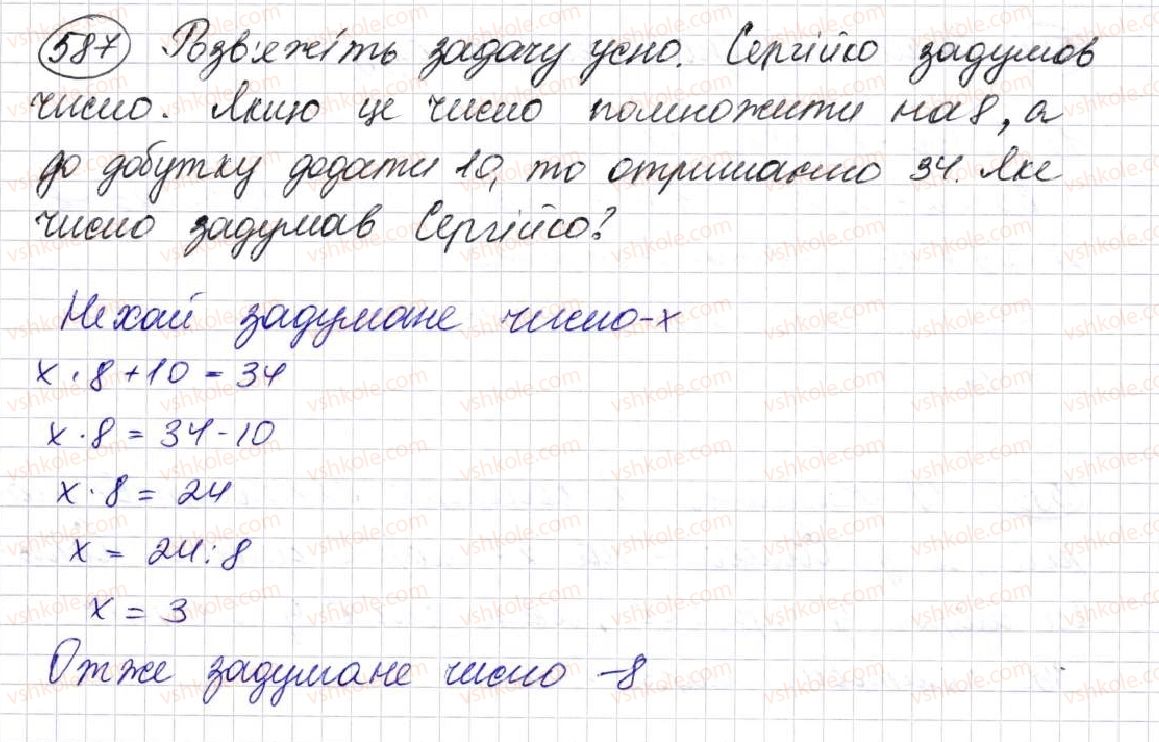 587 Розв'яжіть задачу усно. Сергійко задумав
число. Якщо це число помножити на 8, а
до добутку додати 10, то отримаємо 34. Яке
число задумав Сергійко?
Нехай задумане число - x
x · 8 + 10 = 34
x · 8 = 34 - 10
x · 8 = 24
x = 24 : 8
x = 3
Отже задумане число - 8